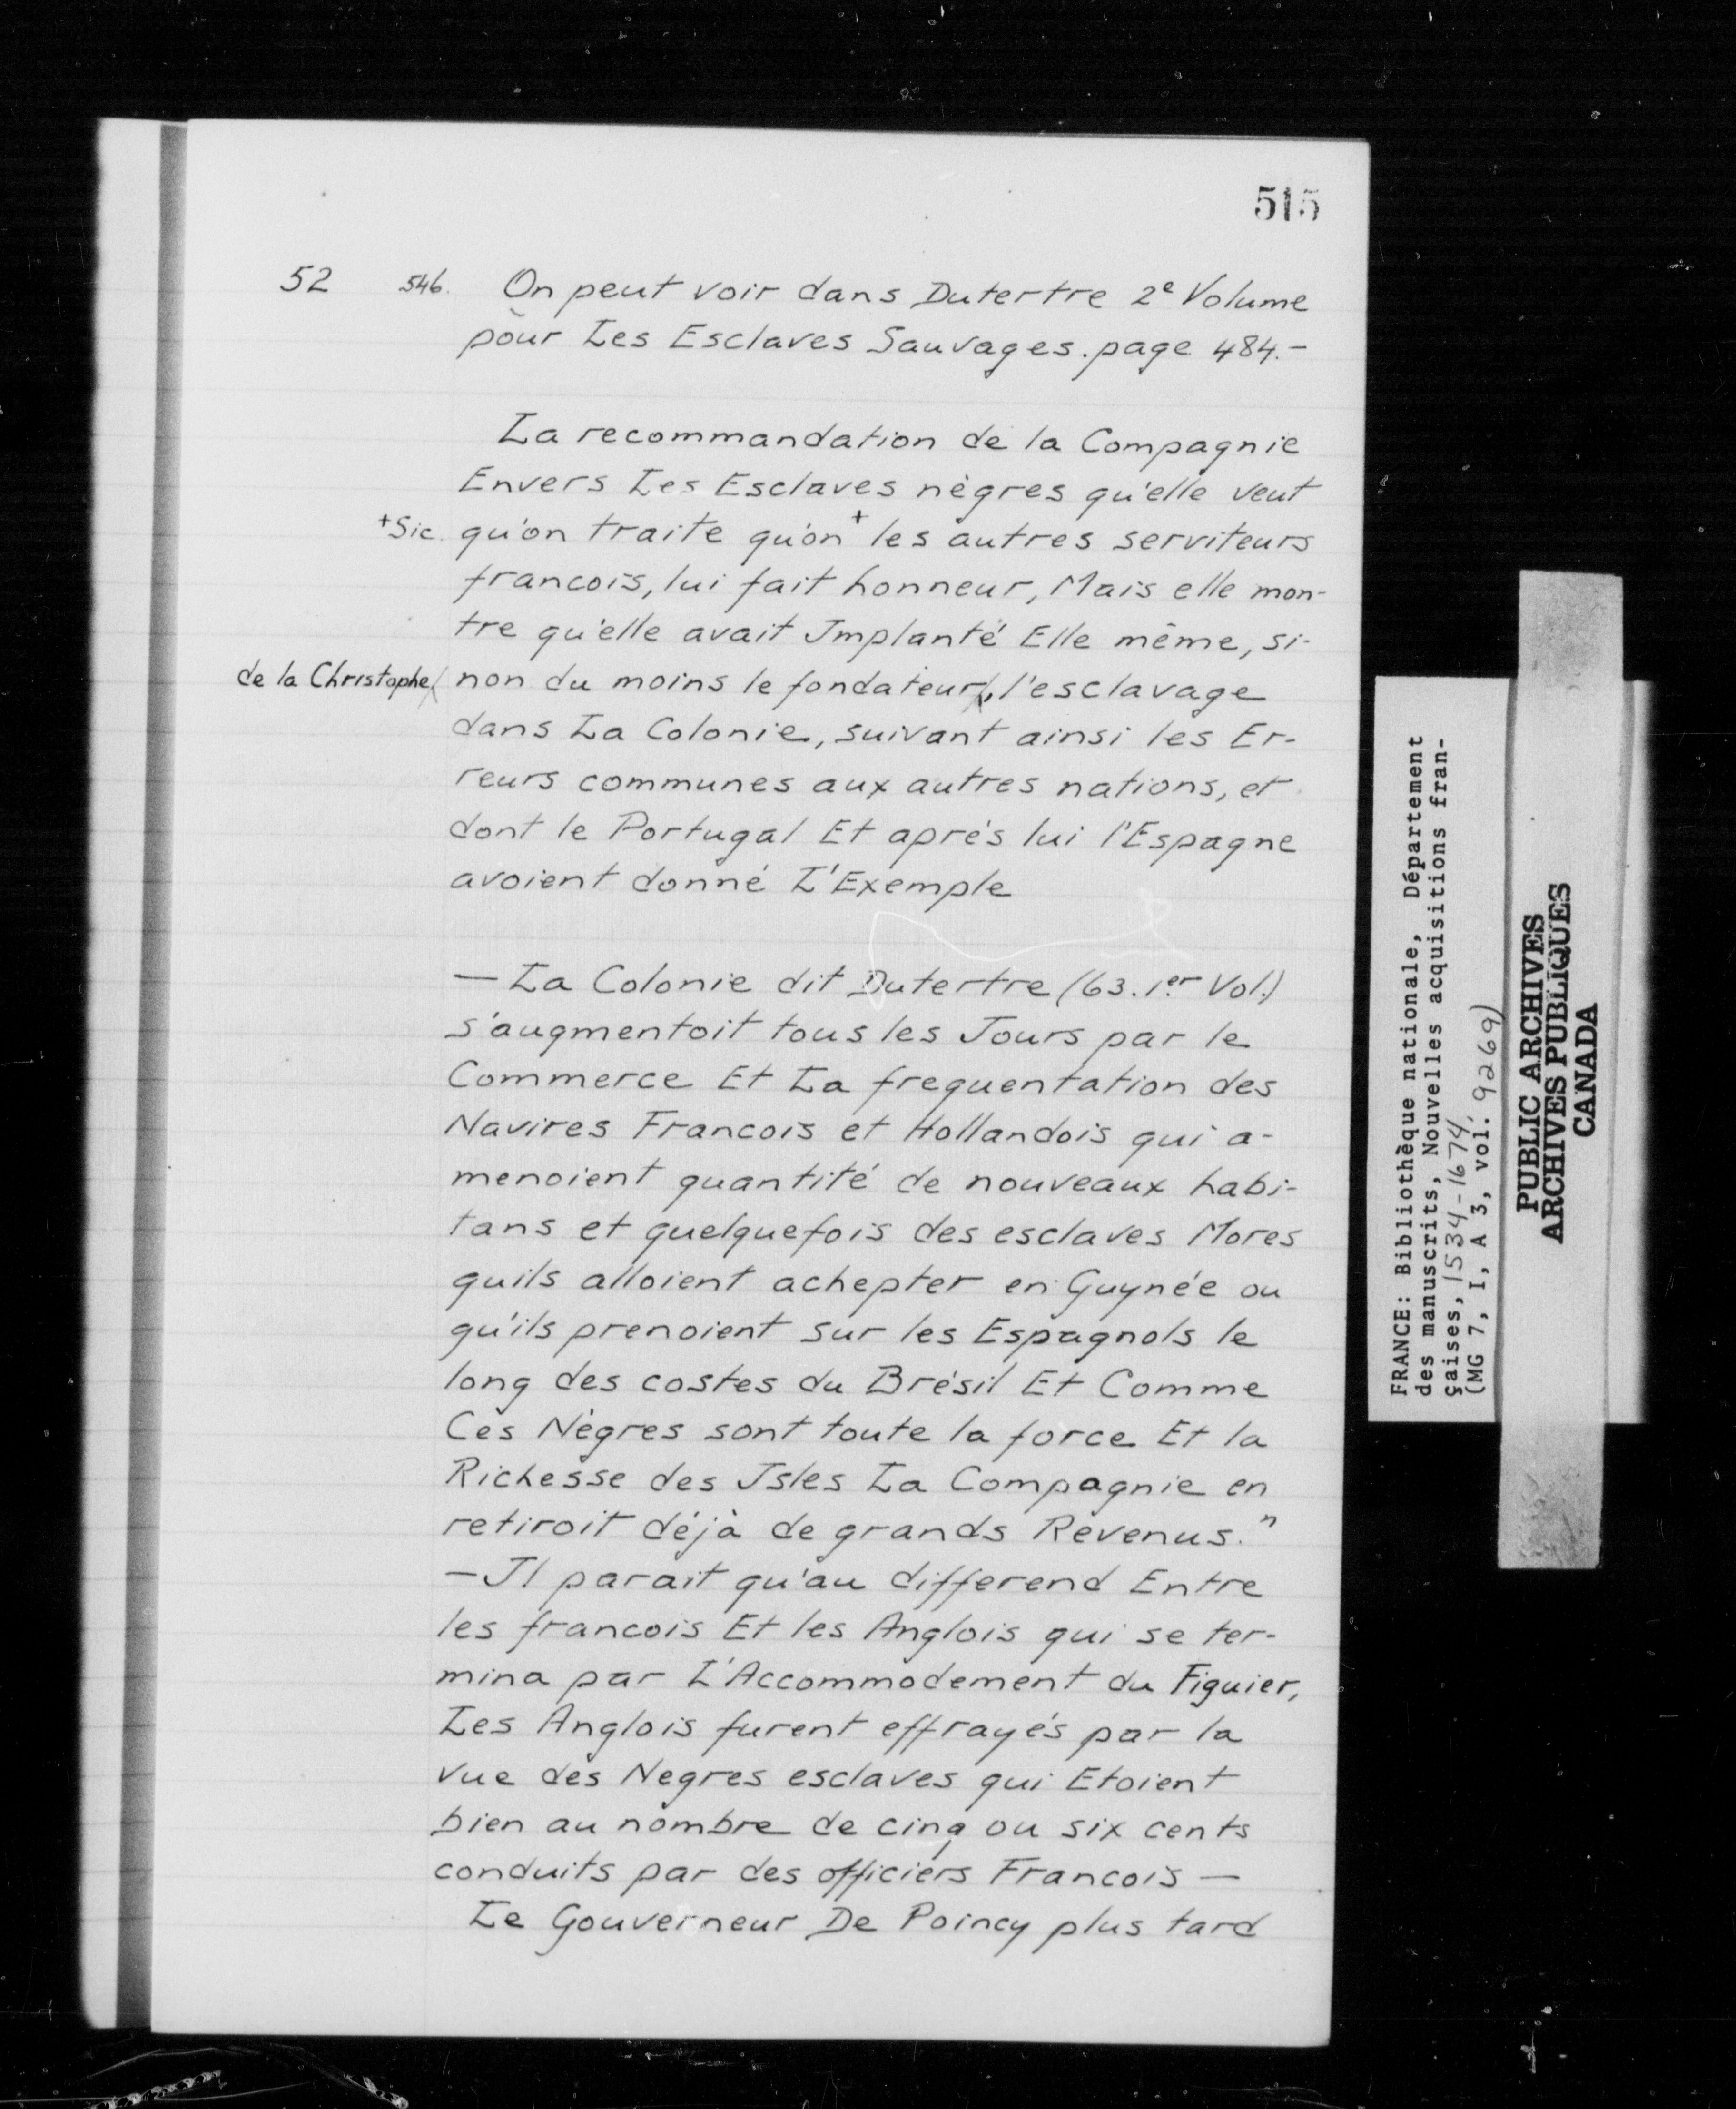 515
52 546. On peut voir dans Dutertre 2e Volume
pour Les Esclaves Sauvages. page 484.-
La recommandation de la Compagnie
Envers Les Esclaves nègres qu'elle veut
+Sic. qu'on traite qu'on+ les autres serviteurs
francois, lui fait honneur, Mais elle mon-
tre qu'elle avait Implanté Elle même, si-
de la Christophe/ non du moins le fondateur/, l'esclavage
dans La Colonie, suivant ainsi les Er-
reurs communes aux autres nations, et
dont le Portugal Et aprés lui l'Espagne
avoient donné L'Exemple
— La Colonie dit Dutertre (63. 1er Vol.)
s'augmentoit tous les Jours par le
Commerce Et La frequentation des
Navires Francois et Hollandois qui a-
menoient quantité de nouveaux habi-
tans et quelquefois des esclaves Mores
quils alloient achepter en Guynée ou
qu'ils prenoient sur les Espagnols le
long des costes du Brésil Et Comme
Ces Nègres sont toute la force Et la
Richesse des Isles La Compagnie en
retiroit déjà de grands Revenus."
— Il parait qu'au differend Entre
les francois Et les Anglois qui se ter-
mina par L'Accommodement du Figuier,
Les Anglois furent effrayés par la
vue des Negres esclaves qui Etoient
bien au nombre de cinq ou six cents
conduits par des officiers Francois —
Le Gouverneur De Poincy plus tard
FRANCE: Bibliothèque nationale, Département
des manuscrits, Nouvelles acquisitions fran-
çaises, 1534-1674,
(MG 7, I, A 3, vol. 9269)
PUBLIC ARCHIVES
ARCHIVES PUBLIQUES
CANADA